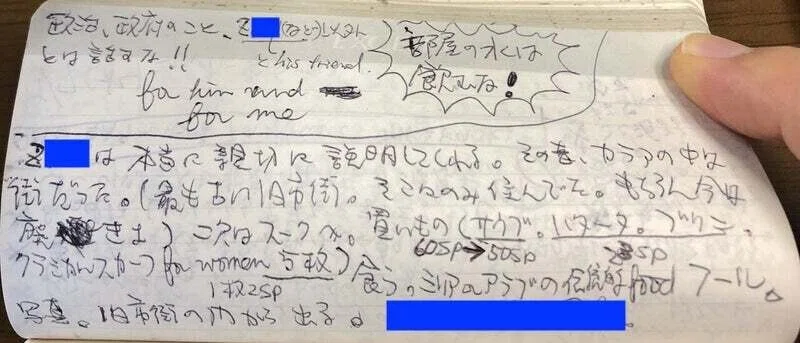 政治、政府のこと、
とは話すな!! & his friend.
部屋の水は
飲むな!
for him and
for me
は本当に親切に説明してくれる。その昔、カラアの中は
街だった。(最も古い旧市街。そこにのみ住んでた。もちろん今は
廃きょ) 次はスークへ。買いもの(サウブ。バータ。
60SP→50SP 25SP
スカーフ for women 5枚)食う。シリアのアラブの伝統的food フール。
1枚25P
写真。旧市街の から出る。